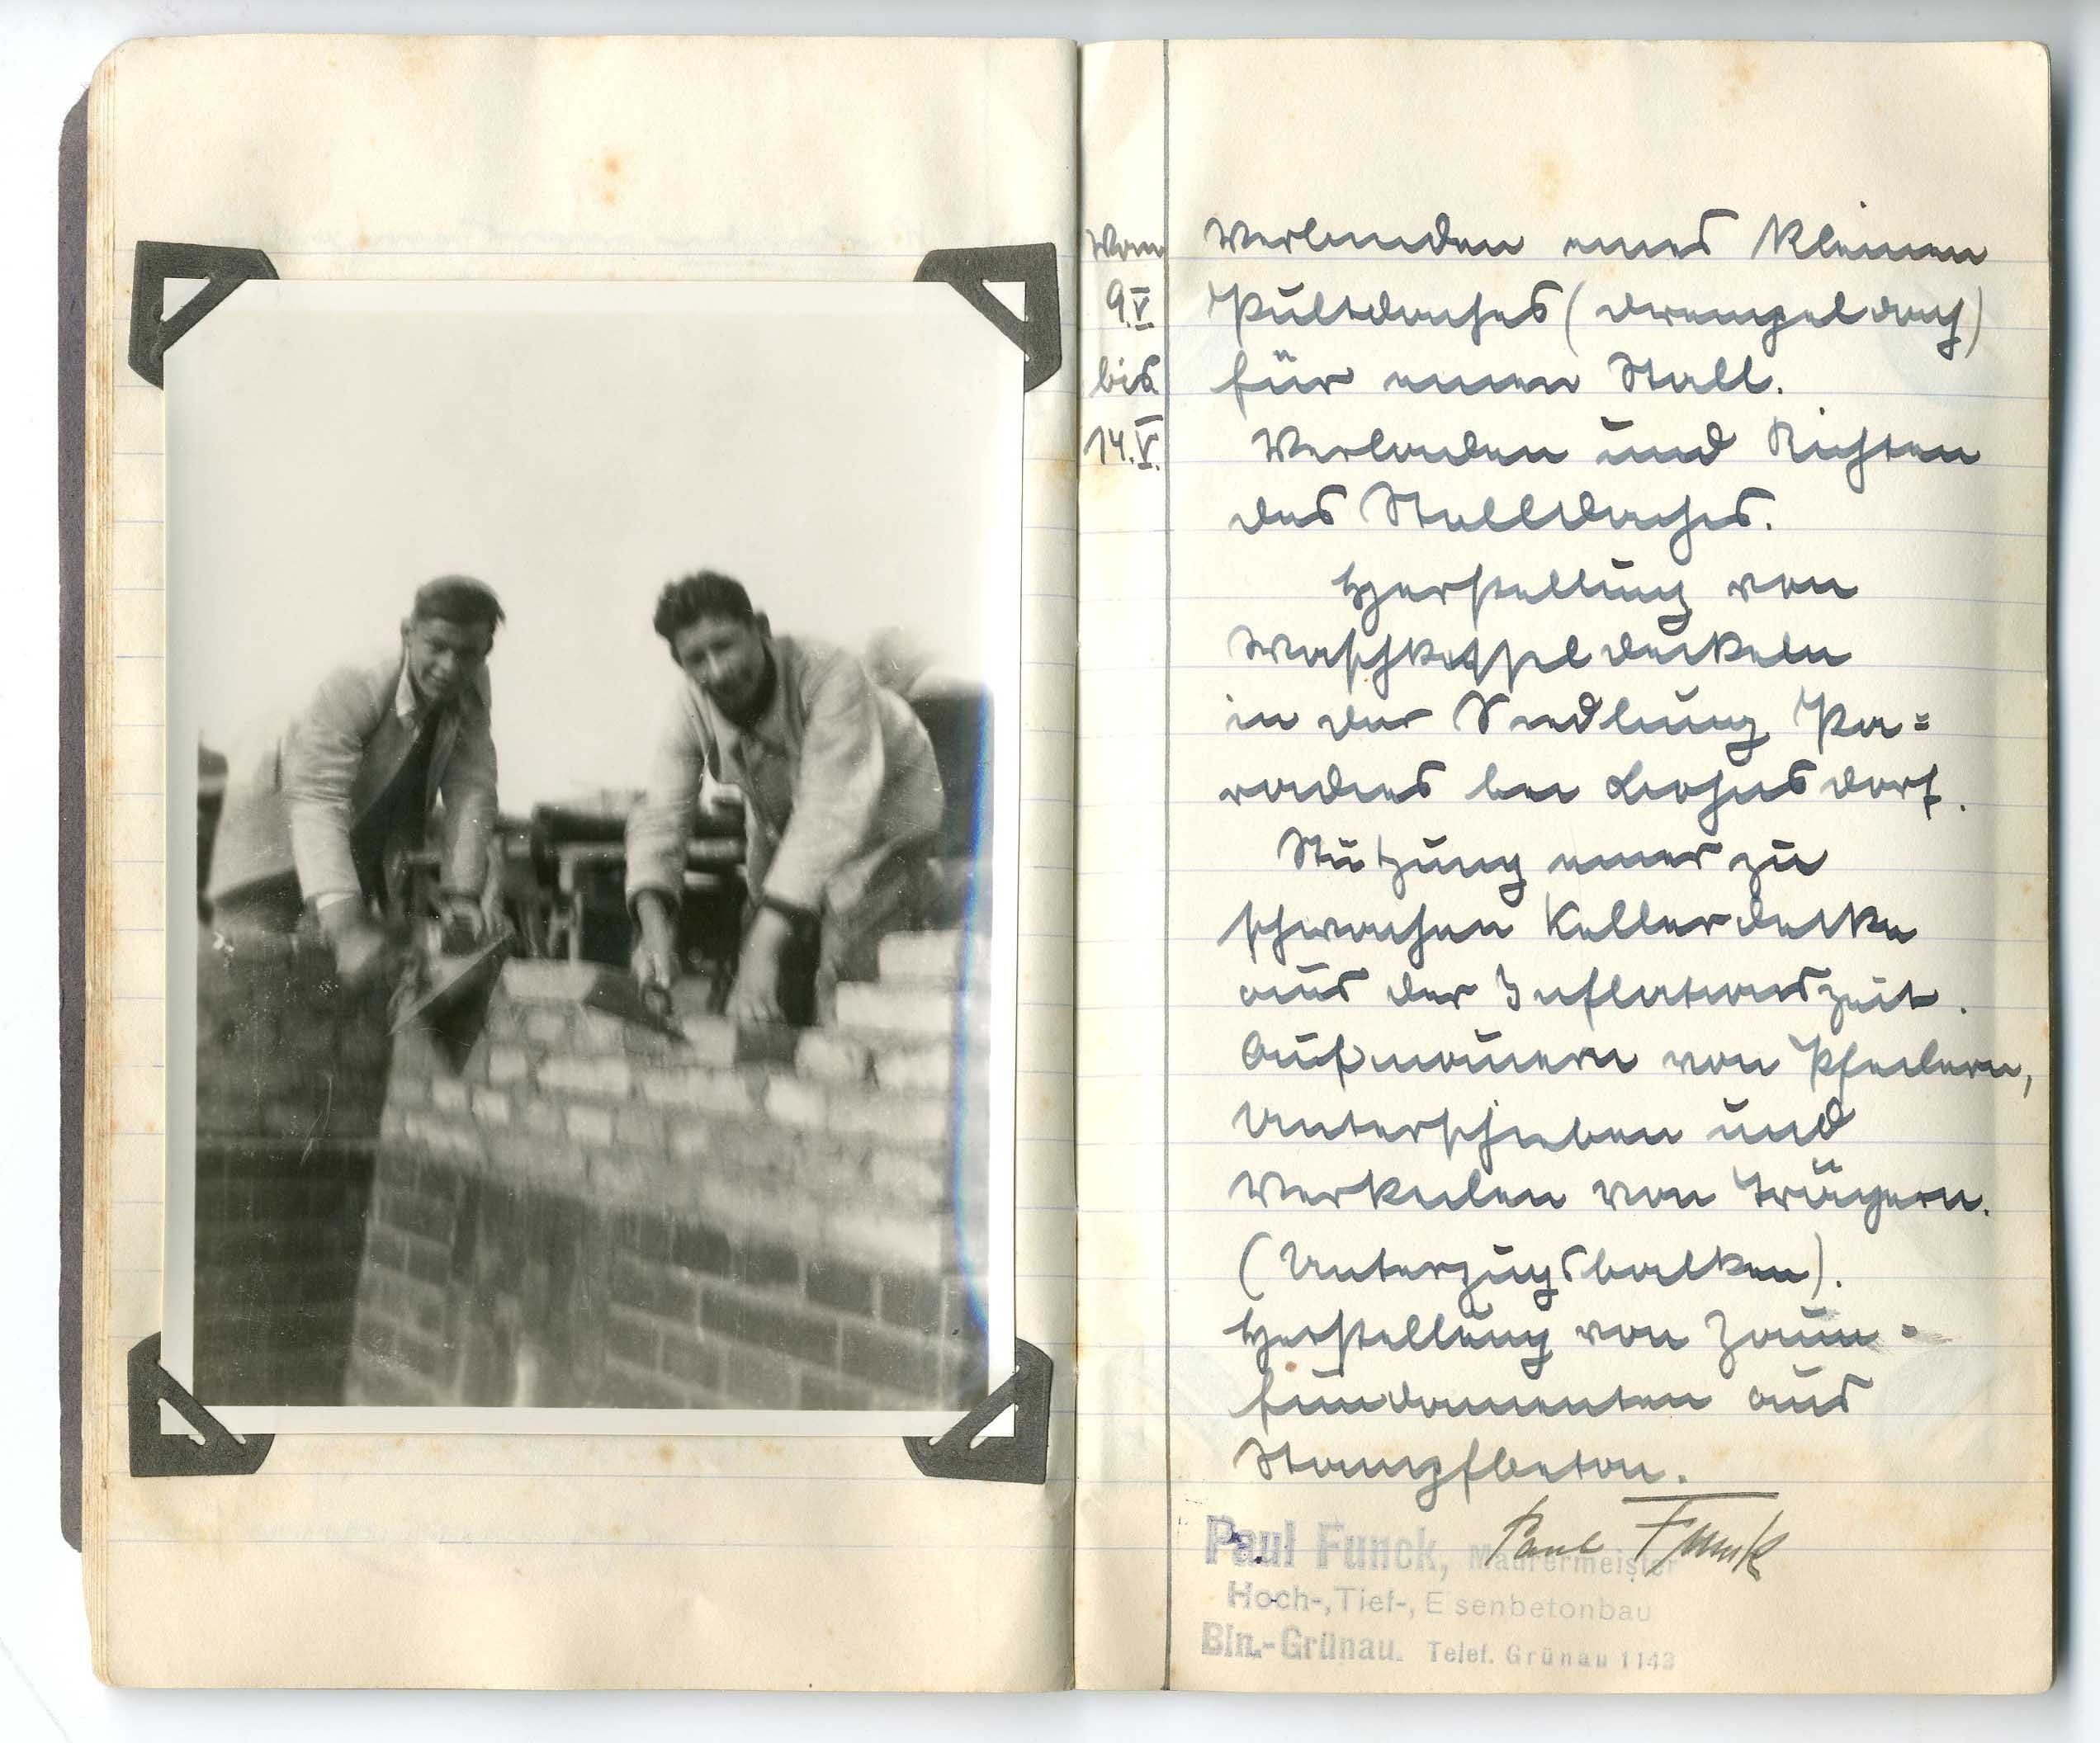 Vom
9.V.
bis
14.V.
Verbinden eines kleinen
Pultdaches (Drempeldach)
für einen Stall.
Verbinden und Richten
des Stalldaches.
Herstellung von
Waschkesseldeckeln
in der Siedlung Pa=
radies bei Bohnsdorf.
Stützung einer zu
schwachen Kellerdecke
aus der Inflationszeit.
Aufmauern von Pfeilern,
Unterschieben und
Verkeilen von Trägern.
(Unterzugsbalken).
Herstellung von Zaun=
fundamenten aus
Stampfbeton.
Paul Funk
Paul Funck, Maurermeister
Hoch-, Tief-, Eisenbetonbau
Bln.-Grünau. Telef. Grünau 1143